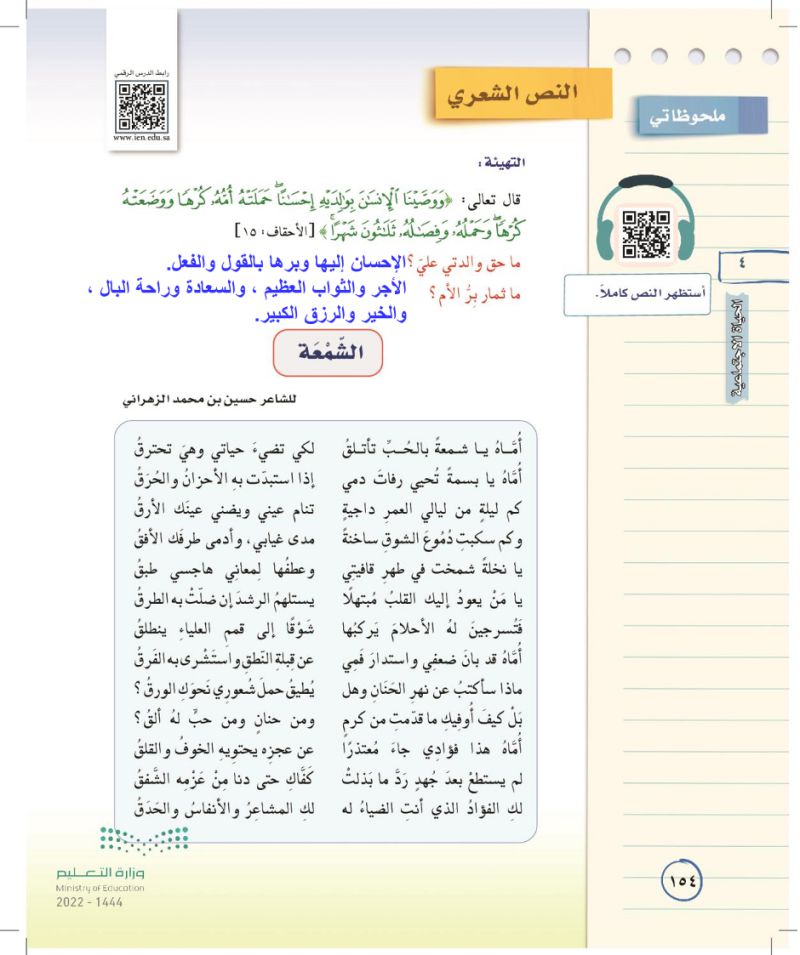 رابط الدرس الرقمي
www.ien.edu.sa
النص الشعري
ملحوظاتي
التهيئة:
قال تعالى: ﴿وَوَصَّيْنَا ٱلْإِنسَٰنَ بِوَٰلِدَيْهِ إِحْسَٰنًا ۖ حَمَلَتْهُ أُمُّهُۥ كُرْهًا وَوَضَعَتْهُ
كُرْهًا ۖ وَحَمْلُهُۥ وَفِصَٰلُهُۥ ثَلَٰثُونَ شَهْرًا ۚ﴾ [الأحقاف: ١٥]
ما حق والدتي عليّ؟ الإحسان إليها وبرها بالقول والفعل.
ما ثمار بِرُّ الأم؟ الأجر والثواب العظيم ، والسعادة وراحة البال ،
والخير والرزق الكبير.
٤
أستظهر النص كاملاً.
الحياة الاجتماعية
الشَّمْعَة
للشاعر حسين بن محمد الزهراني
أُمَّـاهُ يـا شـمعةً بالحُـبِّ تأتـلقُ لكي تضيءَ حياتي وهيَ تحترقُ
أُمَّاهُ يا بسمةً تُحيي رفاتَ دمي إذا استبدَت بهِ الأحزانُ والحُرَقُ
كم ليلةٍ من ليالي العمرِ داجيةٍ تنام عيني ويضني عينَك الأرقُ
وكم سكبتِ دُمُوعَ الشوقِ ساخنةً مدى غيابي، وأدمى طرفَك الأفقُ
يا نخلةً شمخت في طهرِ قافيتي وعطفُها لِمعاني هاجسي طبقُ
يا مَنْ يعودُ إليك القلبُ مُبتهلًا يستلهمُ الرشدَ إن ضلّتْ به الطرقُ
فَتُسرجينَ لهُ الأحلامَ يَركبُها شَوْقًا إلى قممِ العلياءِ ينطلقُ
أُمَّاهُ قد بانَ ضعفي واستدارَ فَمِي عن قِبلةِ النّطقِ واستَشْرى به الفَرقُ
ماذا سأكتبُ عن نهرِ الحَنَانِ وهل يُطيقُ حملَ شُعوري نَحوَكِ الورقُ؟
بَلْ كيفَ أُوفيكِ ما قدّمتِ من كرمٍ ومن حنانٍ ومن حبٍّ لهُ ألقُ؟
أُمَّاهُ هذا فؤادي جاءَ مُعتذرًا عن عجزِه يحتويهِ الخوفُ والقلقُ
لم يستطعْ بعدَ جُهدٍ رَدَّ ما بَذلتْ كَفَّاكِ حتى دنا مِنْ عَزْمِه الشَّفقُ
لكِ الفؤادُ الذي أنتِ الضياءُ له لكِ المشاعرُ والأنفاسُ والحَدَقُ
وزارة التعليم
Ministry of Education
2022 - 1444
١٥٤